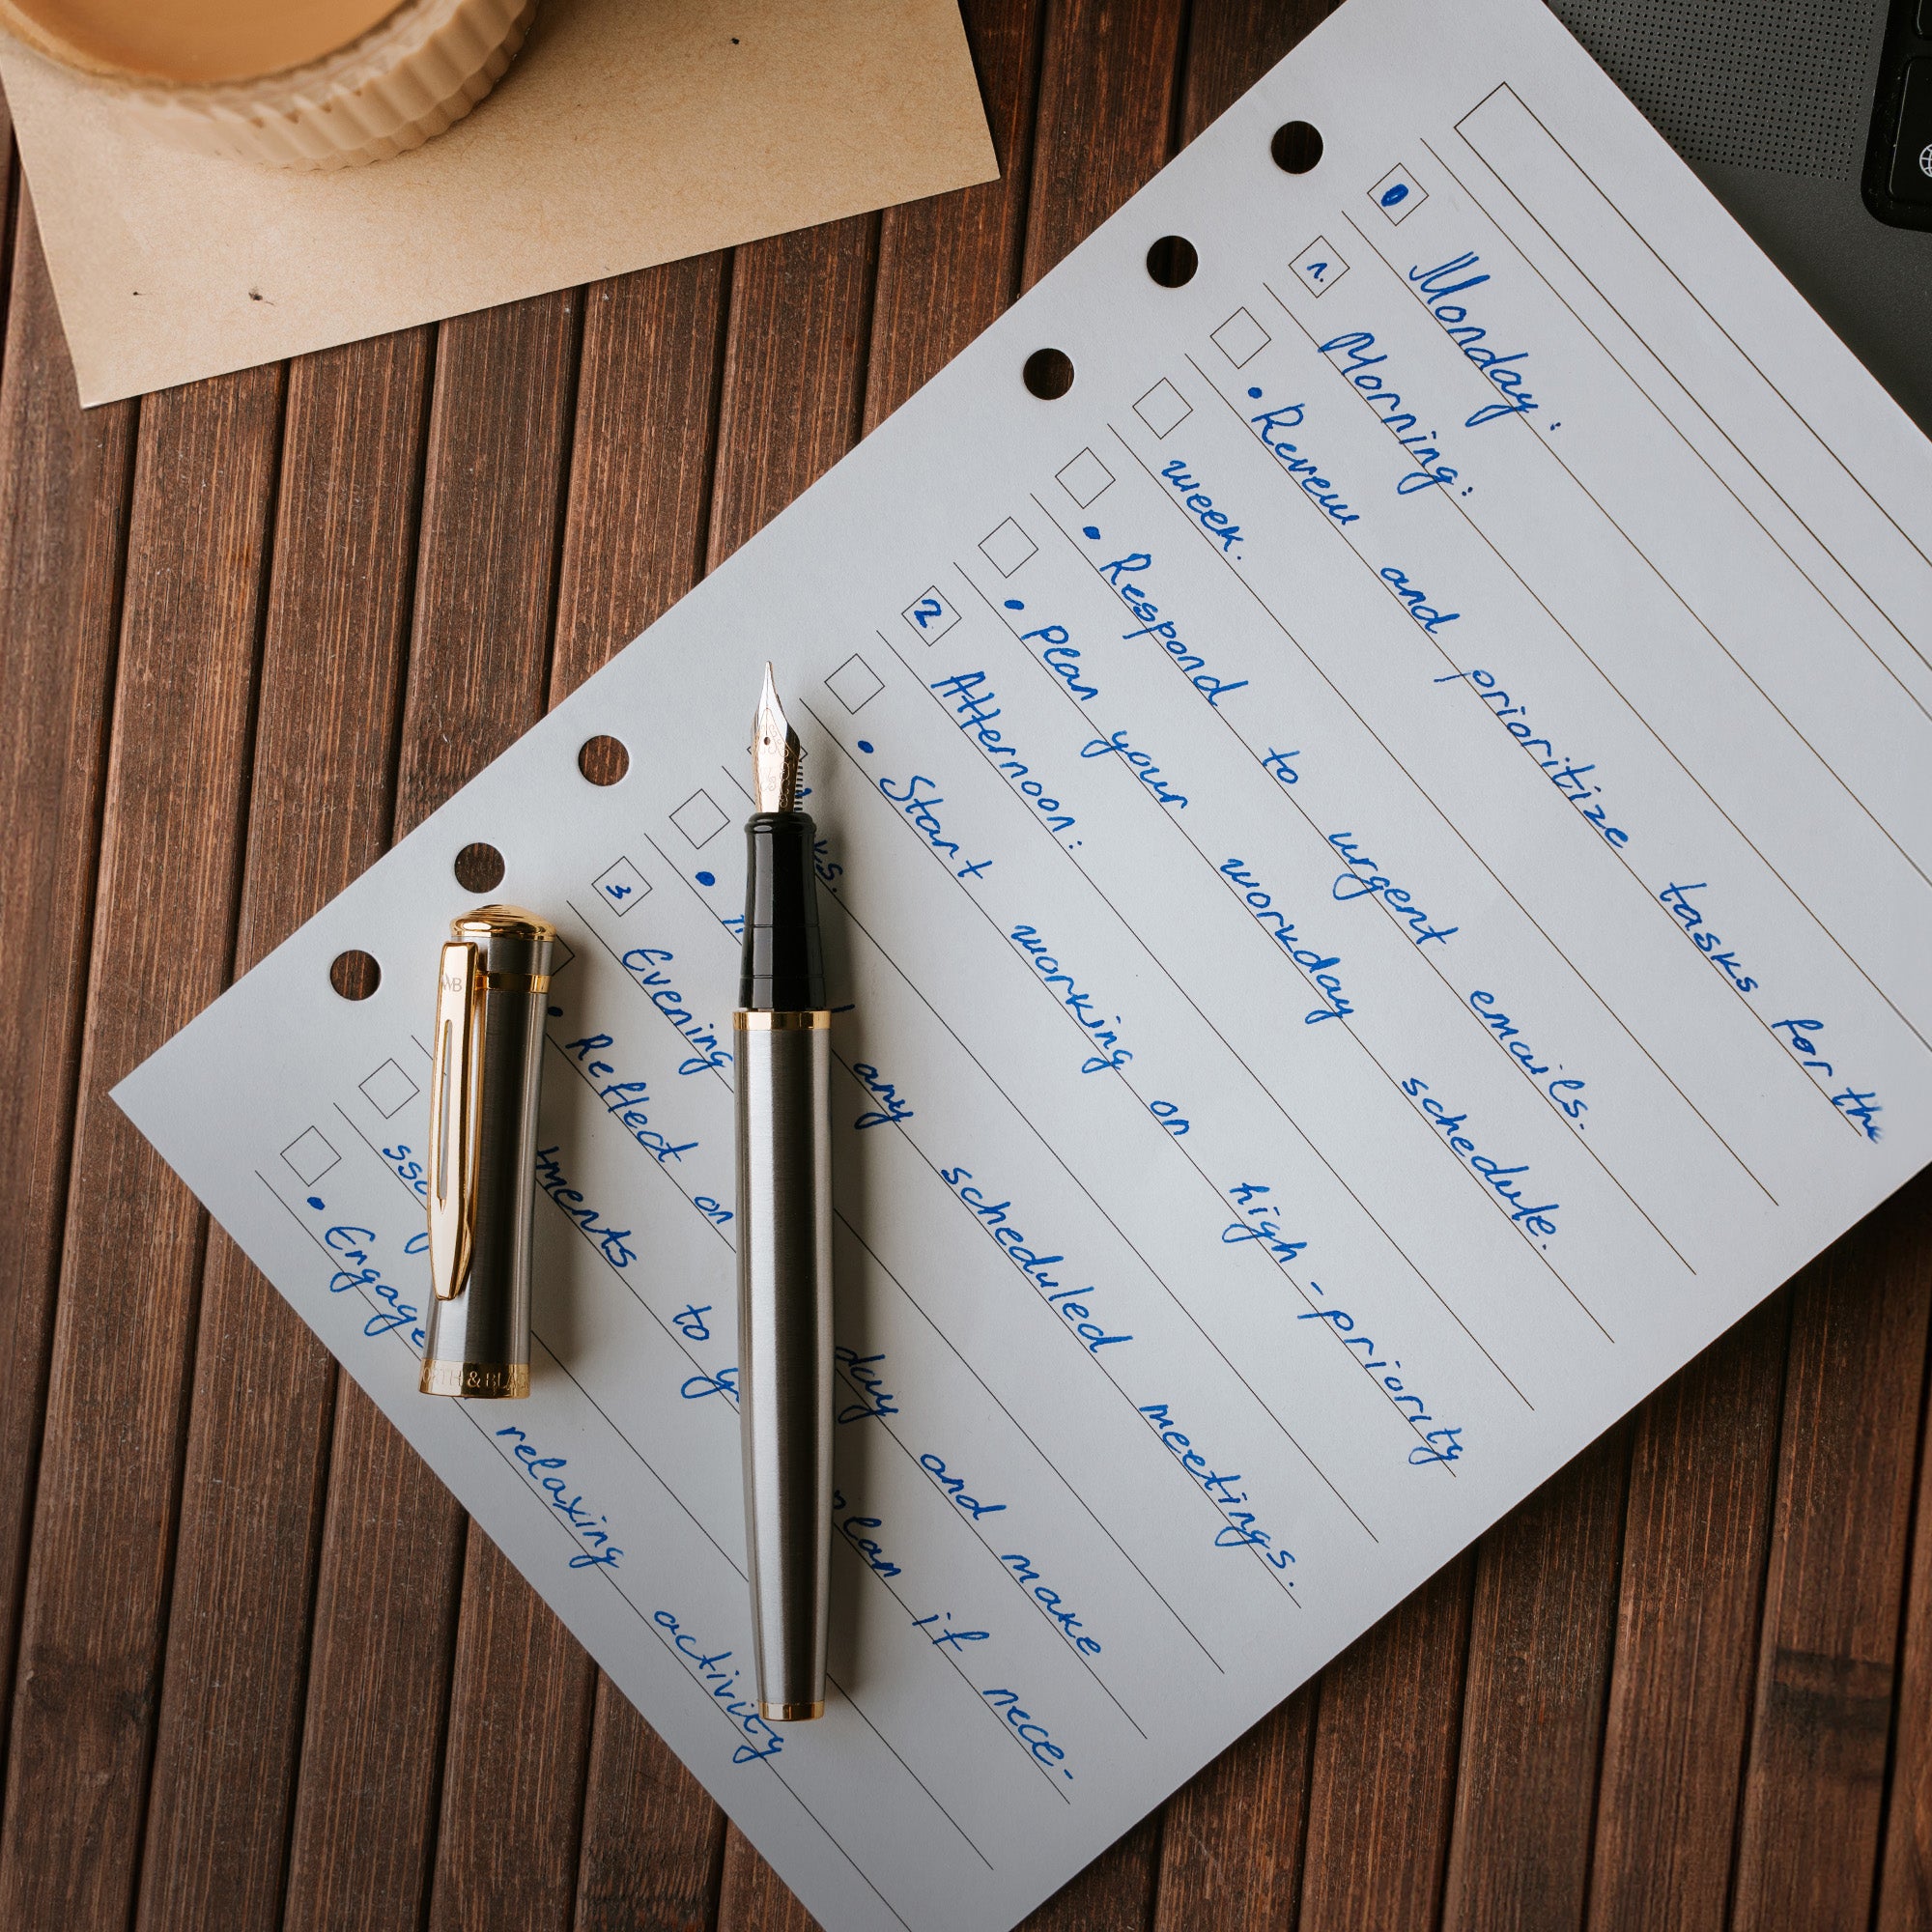 Monday:
1. Morning:
• Review and prioritize tasks for the
week.
• Respond to urgent emails.
• Plan your workday schedule.
2 Afternoon:
• Start working on high-priority
ks.
• any scheduled meetings.
3 Evening
• Reflect on day and make
ments to y plan if nece-
ssa
• Engage relaxing activity
WB
RTH & BLA